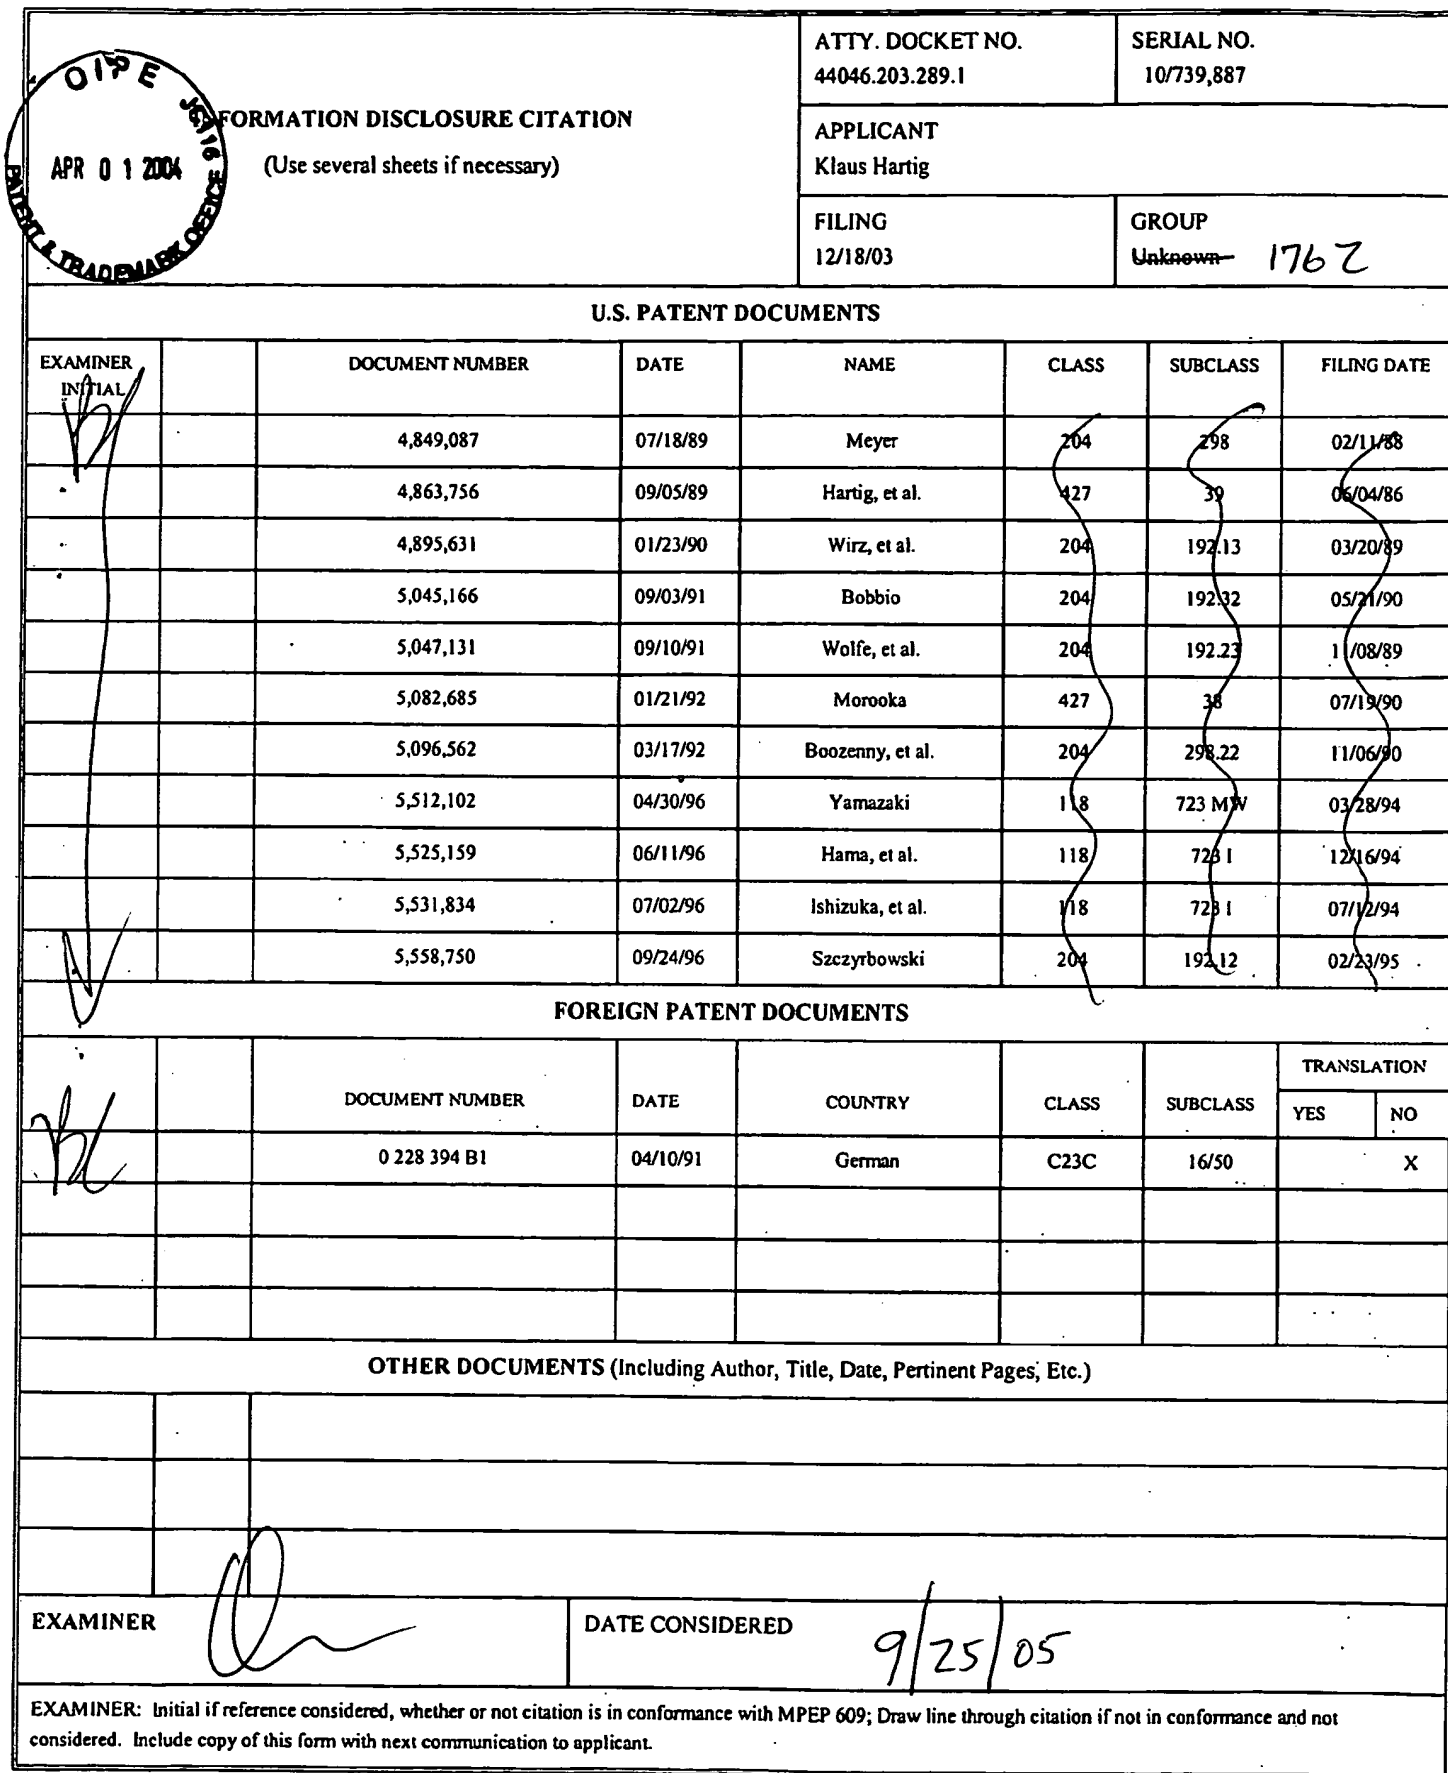 ATTY. DOCKET NO.
44046.203.289.1
SERIAL NO.
10/739,887
OIPE
JC116
APR 0 1 2004
PATENT & TRADEMARK OFFICE
FORMATION DISCLOSURE CITATION
(Use several sheets if necessary)
APPLICANT
Klaus Hartig
FILING
12/18/03
GROUP
Unknown 1762
U.S. PATENT DOCUMENTS
EXAMINER INITIAL DOCUMENT NUMBER DATE NAME CLASS SUBCLASS FILING DATE
4,849,087 07/18/89 Meyer 204 298 02/11/88
4,863,756 09/05/89 Hartig, et al. 427 39 06/04/86
4,895,631 01/23/90 Wirz, et al. 204 192.13 03/20/89
5,045,166 09/03/91 Bobbio 204 192.32 05/21/90
5,047,131 09/10/91 Wolfe, et al. 204 192.23 11/08/89
5,082,685 01/21/92 Morooka 427 38 07/19/90
5,096,562 03/17/92 Boozenny, et al. 204 298.22 11/06/90
5,512,102 04/30/96 Yamazaki 118 723 MW 03/28/94
5,525,159 06/11/96 Hama, et al. 118 723 I 12/16/94
5,531,834 07/02/96 Ishizuka, et al. 118 723 I 07/12/94
5,558,750 09/24/96 Szczyrbowski 204 192.12 02/23/95
FOREIGN PATENT DOCUMENTS
DOCUMENT NUMBER DATE COUNTRY CLASS SUBCLASS TRANSLATION
YES NO
0 228 394 B1 04/10/91 German C23C 16/50 X
OTHER DOCUMENTS (Including Author, Title, Date, Pertinent Pages, Etc.)
EXAMINER
DATE CONSIDERED 9/25/05
EXAMINER: Initial if reference considered, whether or not citation is in conformance with MPEP 609; Draw line through citation if not in conformance and not
considered. Include copy of this form with next communication to applicant.